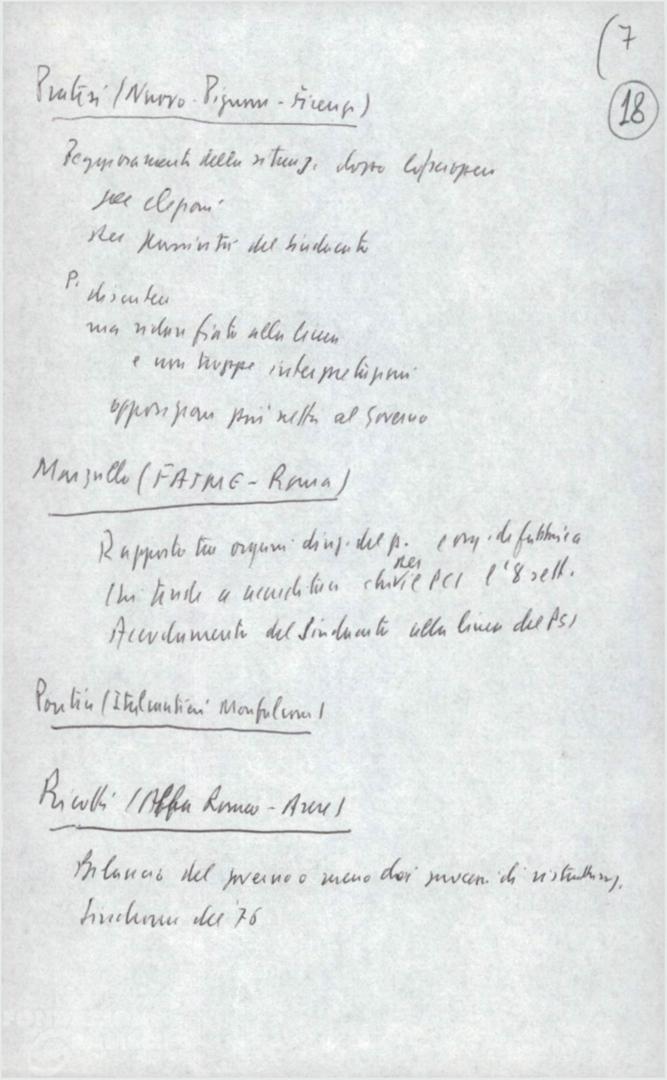 (7
18
Pratesi (Nuovo Pignone - Firenze)
Peggioramento della situaz. dopo
elezioni
del Sindacato
P. discuteva
ma ridare fiato alla linea
e non troppe interpretazioni
opposizione più netta al Governo
Marzullo (FATME - Roma)
Rapporto tra organi dirig. del p. e org. di fabbrica
Chi tende a nel PCI l'8 sett.
Accodamento del Sindacato alla linea del PSI
(Italcantieri Monfalcone)
Ricotti (Alfa Romeo - Arese)
Bilancio del governo o meno dei processi di ristrutturaz.
Sindrome del '76